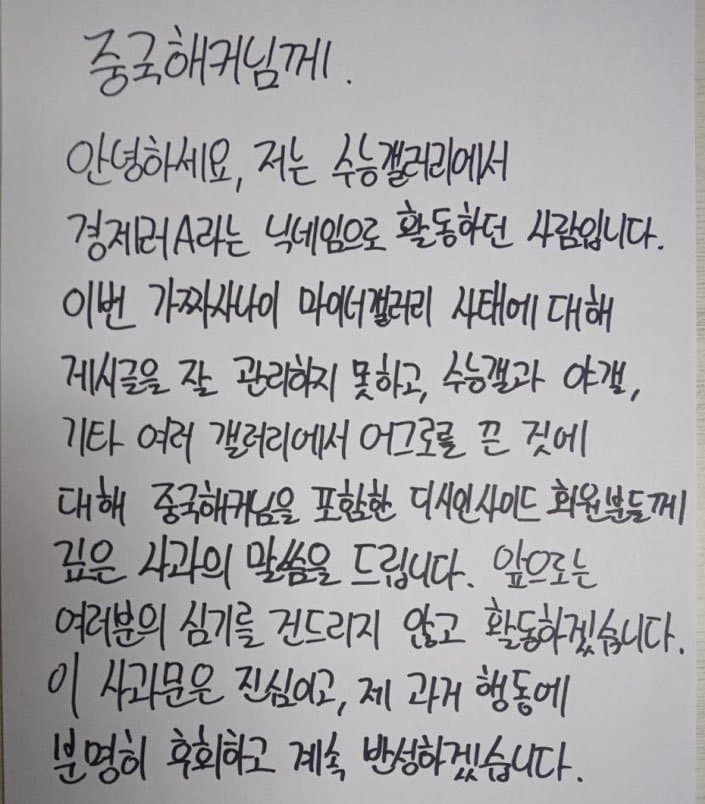 중국해커님께.
안녕하세요, 저는 수능갤러리에서
경제러A라는 닉네임으로 활동하던 사람입니다.
이번 가짜사나이 마이너갤러리 사태에 대해
게시글을 잘 관리하지 못하고, 수능갤과 야갤,
기타 여러 갤러리에서 어그로를 끈 것에
대해 중국해커님을 포함한 디시인사이드 회원분들께
깊은 사과의 말씀을 드립니다. 앞으로는
여러분의 심기를 건드리지 않고 활동하겠습니다.
이 사과문은 진심이고, 제 과거 행동에
분명히 후회하고 계속 반성하겠습니다.